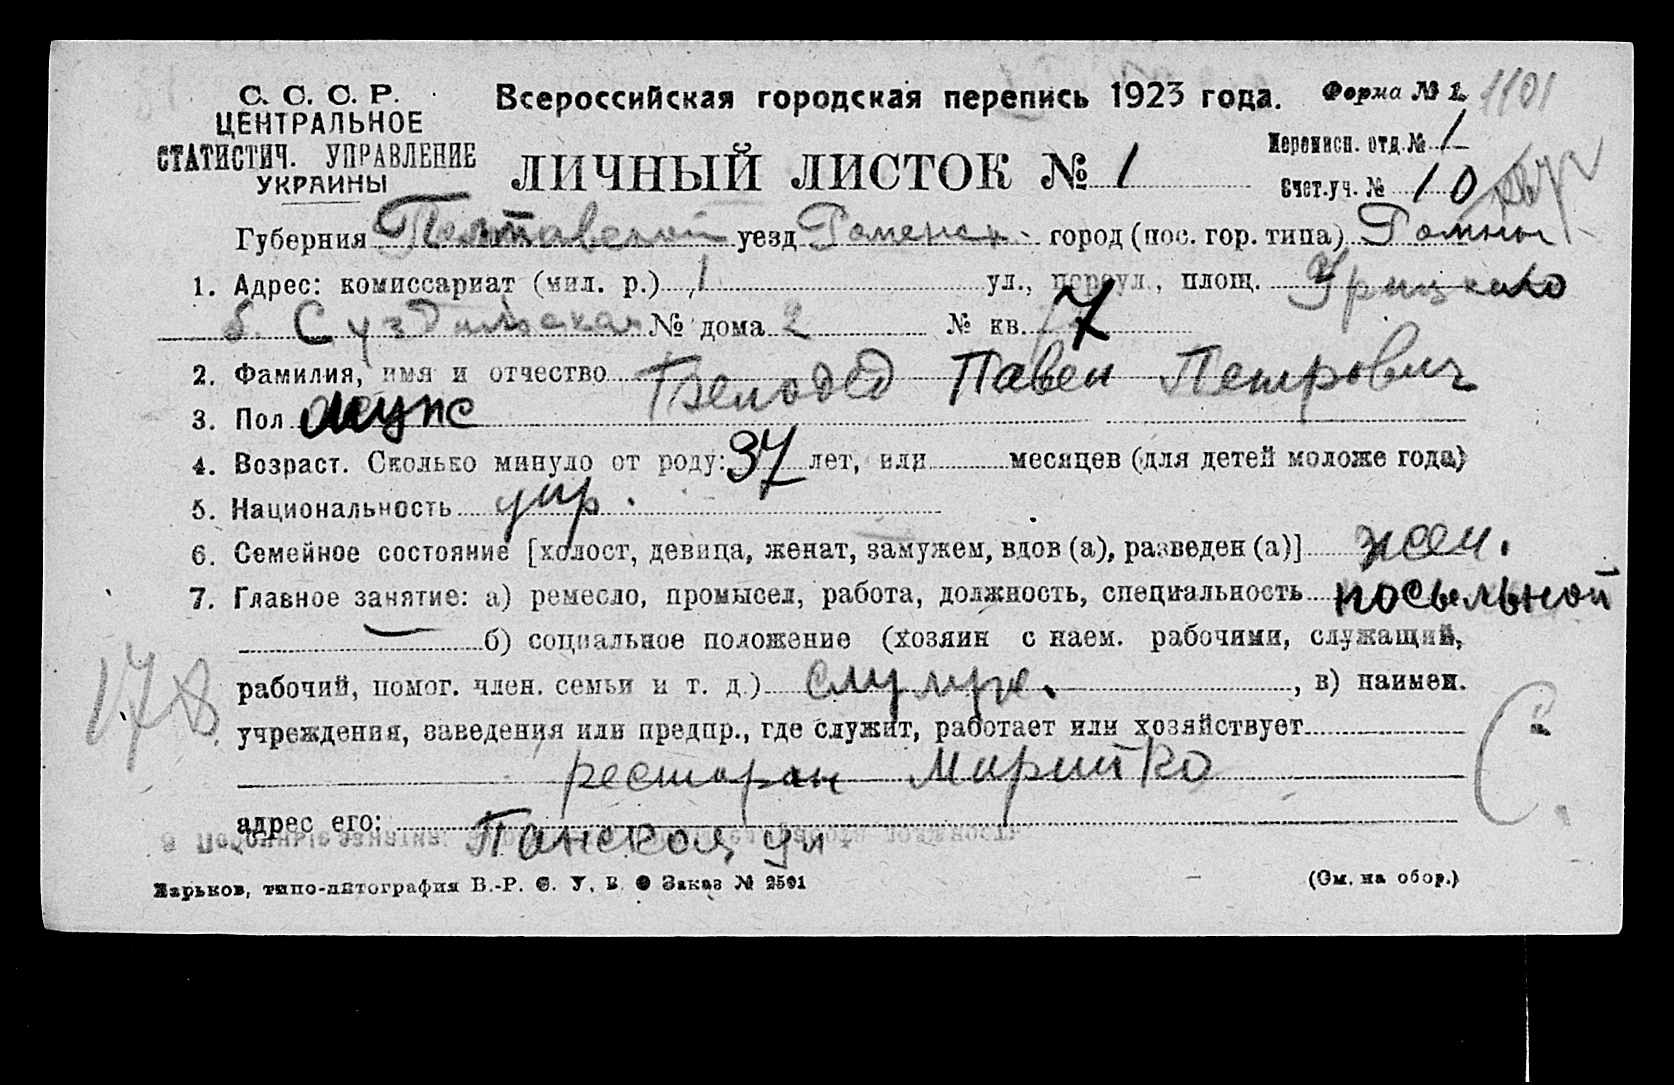 С. С. С. Р.
ЦЕНТРАЛЬНОЕ
СТАТИСТИЧ. УПРАВЛЕНИЕ
УКРАИНЫ
Всероссийская городская перепись 1923 года.
Форма № 1.
1101
ЛИЧНЫЙ ЛИСТОК № 1
Переписн. отд. № 1
Счет. уч. № 10
Губерния Полтавской уезд Роменск. город (пос. гор. типа) Ромны
1. Адрес: комиссариат (мил. р.) 1 ул., переул., площ. Урицкаго
б. Суздальская № дома 2 № кв. 7
2. Фамилия, имя и отчество Белодед Павел Петрович
3. Пол муж
4. Возраст. Сколько минуло от роду: 37 лет, или месяцев (для детей моложе года)
5. Национальность укр.
6. Семейное состояние [холост, девица, женат, замужем, вдов (а), разведен (а)] жен.
7. Главное занятие: а) ремесло, промысел, работа, должность, специальность посыльной
б) социальное положение (хозяин с наем. рабочими, служащий,
рабочий, помог. член. семьи и т. д.) служ., в) наимен.
учреждения, заведения или предпр., где служит, работает или хозяйствует
ресторан
адрес его: Панская ул
178
С.
Харьков, типо-литография В.-Р. С. У. Заказ № 2591
(См. на обор.)